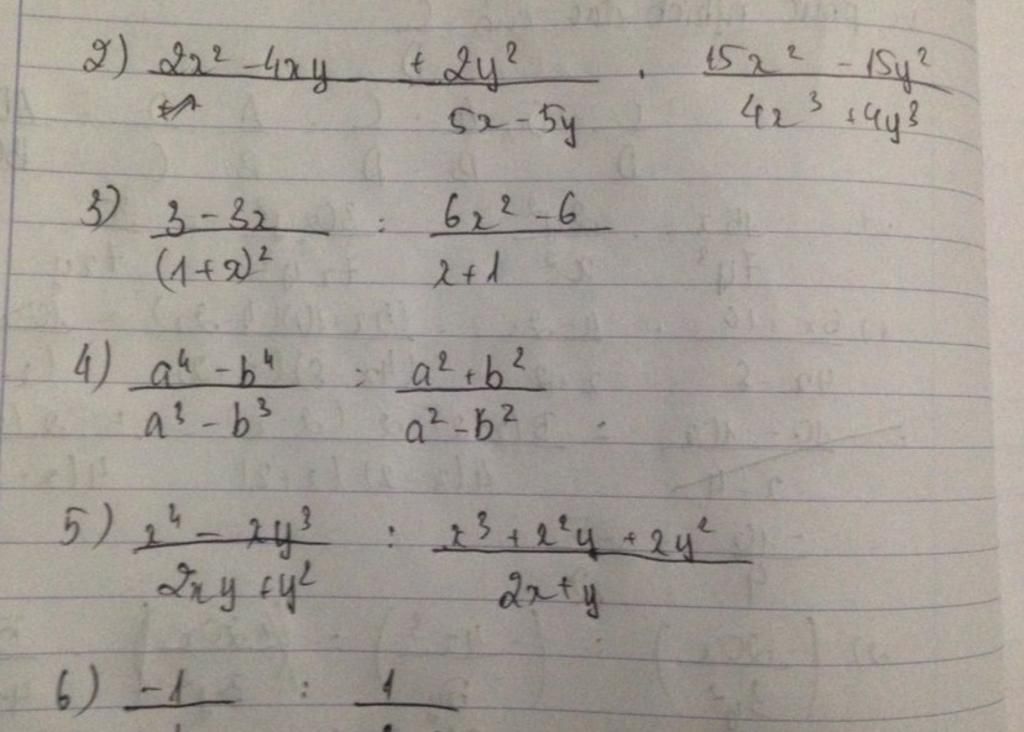 2) (2x² - 4xy + 2y²)/(5x - 5y) . (15x² - 15y²)/(4x³ + 4y³)
3) (3 - 3x)/((1+x)²) : (6x² - 6)/(x+1)
4) (a⁴ - b⁴)/(a³ - b³) : (a² + b²)/(a² - b²)
5) (x⁴ - xy³)/(2xy + y²) : (x³ + x²y + xy²)/(2x + y)
6) -1 : 1